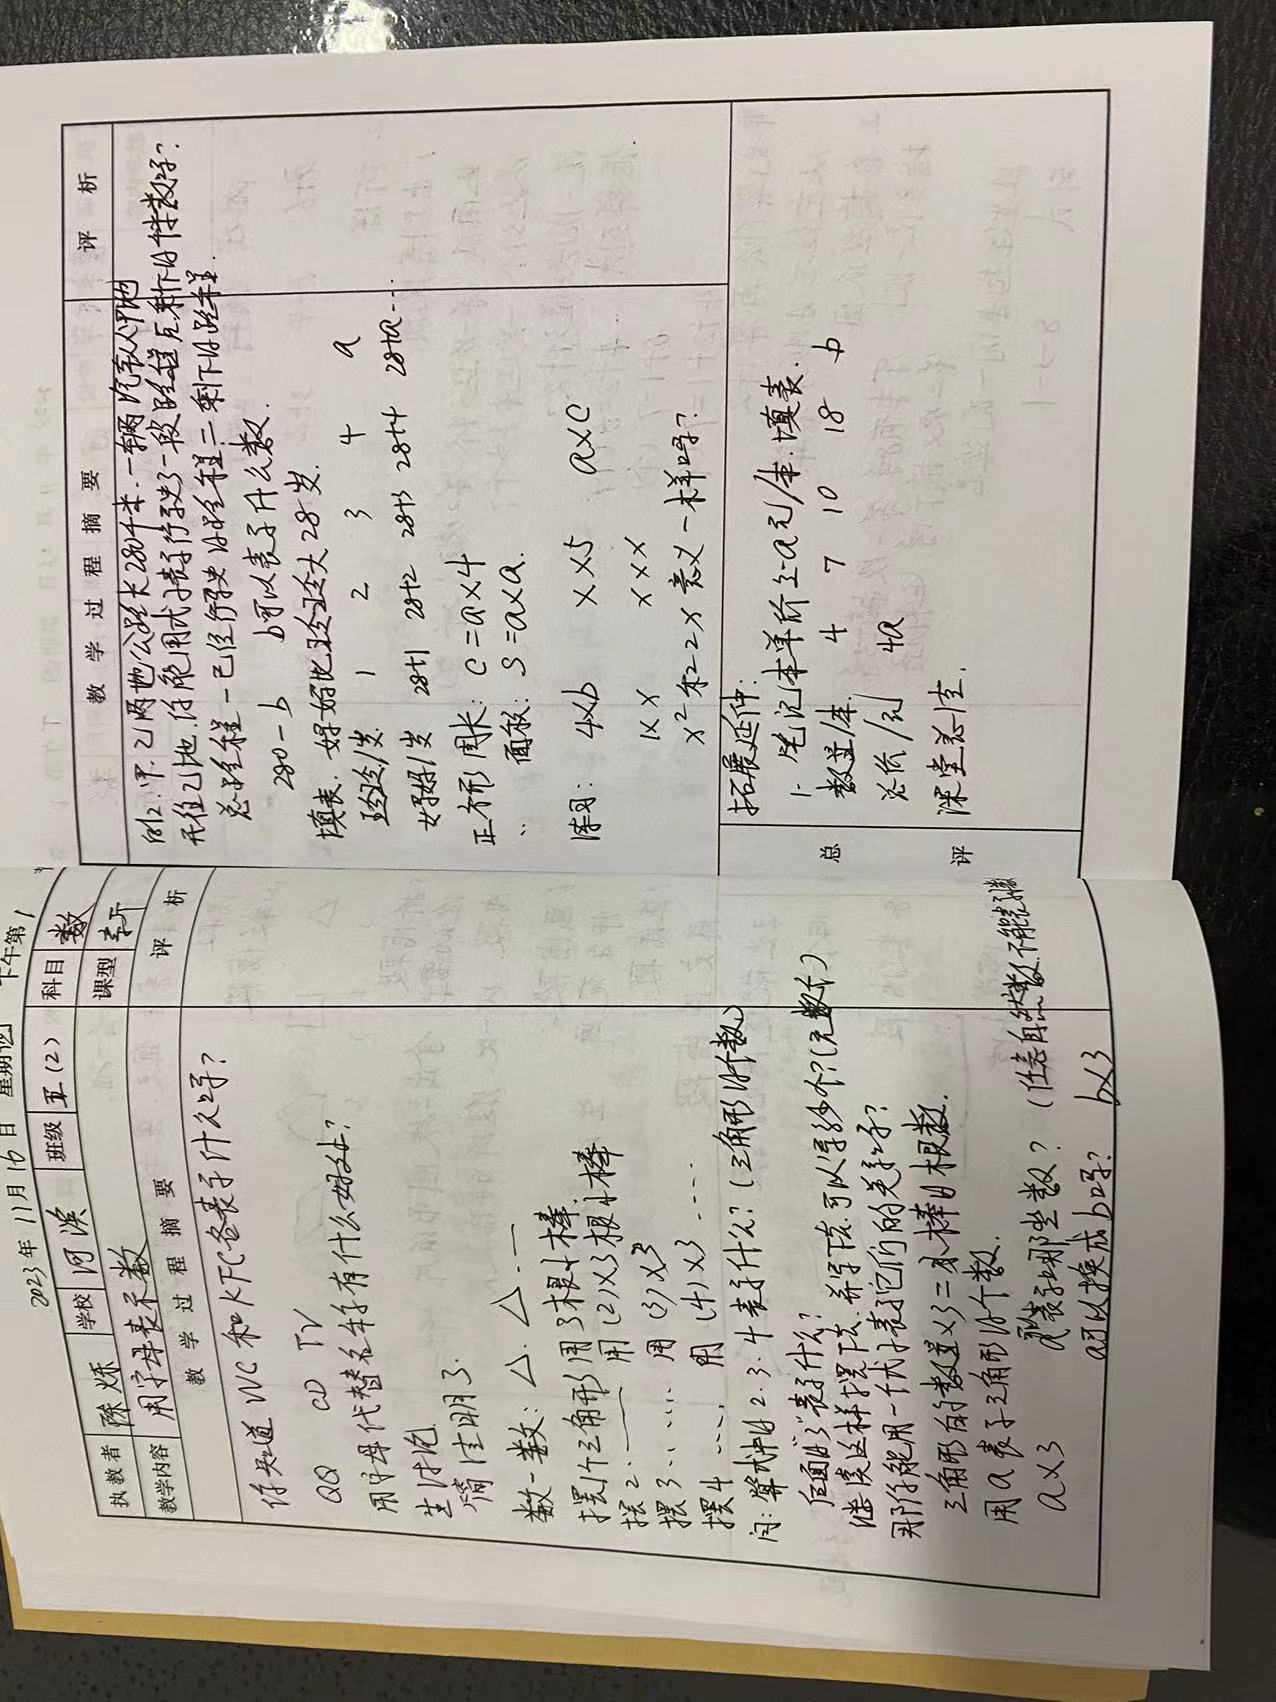 2023年 11月 16日 星期四 下午第1
执教者 陈烁 学校 河滨 班级 五(2) 科目 数
教学内容 用字母表示数 课型 新
教学过程摘要 评析
你知道WC和KFC各表示什么吗?
QQ CD TV
用字母代替名字有什么好处?
生讨论
简洁明了.
数一数: △. △ ……
摆1个三角形用3根小棒.
摆2 …… 用(2)×3根小棒
摆3 …… 用(3)×3
摆4 …… 用(4)×3 ……
问:算式中的2.3.4表示什么?(三角形的个数)
后面的"3"表示什么?
继续这样摆下去.并写下去.可以写多少个?(无数个)
那你能用一个式子表示它们的关系吗?
三角形的数量×3=小棒的根数.
用a表示三角形的个数.
a×3 a表示哪些数?(任意自然数.不能表示小数
a可以换成b吗? b×3
教学过程摘要 评析
例2:甲.乙两地公路长280千米.一辆汽车从甲地
开往乙地.你能用式子表示行驶了一段路程后.剩下的千米数吗?
总路程-已经行驶的路程=剩下的路程.
280-b b可以表示什么数
填表.妈妈比玲玲大28岁.
玲玲/岁 1 2 3 4 a
妈妈/岁 28+1 28+2 28+3 28+4 28+a…
正方形周长: C=a×4
〃 面积: S=a×a.
练习: 4×b x×5 a×c
1×x x×x
x²和2x意义一样吗?
拓展延伸:
1. 笔记本单价是a元/本.填表.
数量/本. 4 7 10 18 b
总价/元 4a
课堂总结.
总评